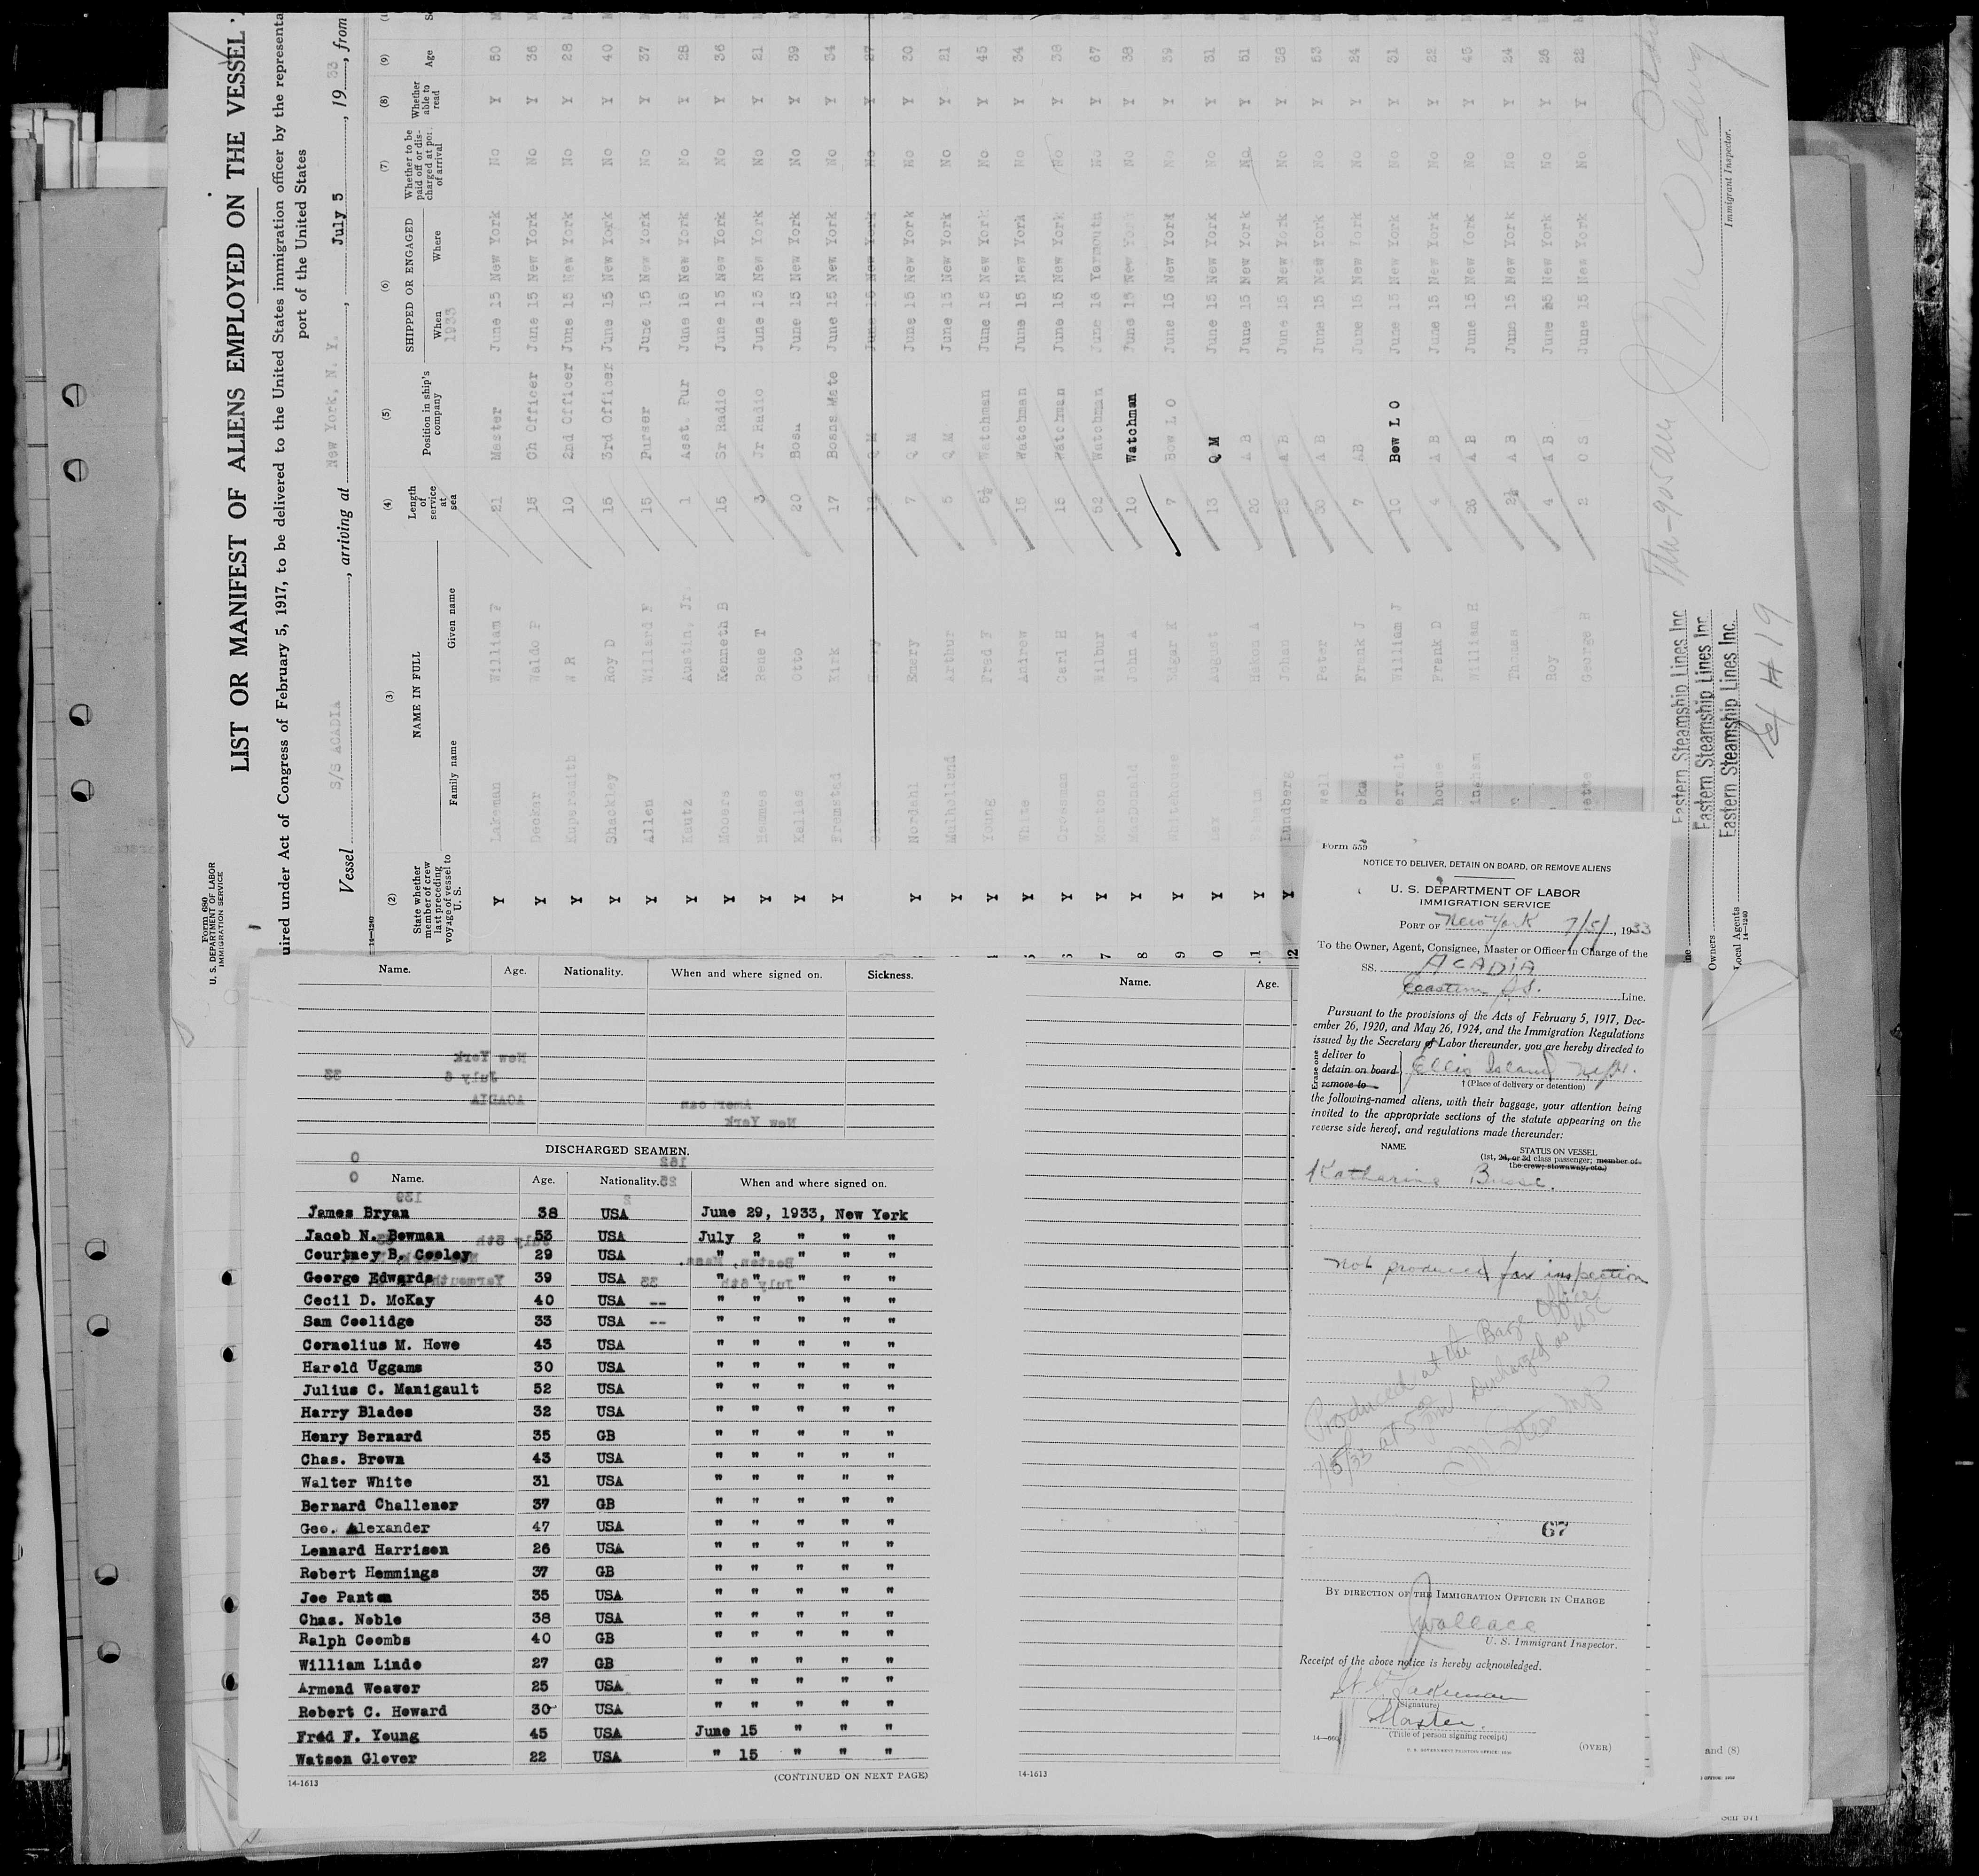 Form 680
U. S. DEPARTMENT OF LABOR
IMMIGRATION SERVICE
LIST OR MANIFEST OF ALIENS EMPLOYED ON THE VESSEL
uired under Act of Congress of February 5, 1917, to be delivered to the United States immigration officer by the representa
port of the United States
Vessel S/S ACADIA, arriving at New York, N. Y., July 5, 1933, from
14-1240
(2) (3) (4) (5) (6) (7) (8) (9)
State whether member of crew last preceding voyage of vessel to U. S.
NAME IN FULL
Family name Given name
Length of service at sea
Position in ship's company
SHIPPED OR ENGAGED
When Where
1933
Whether to be paid off or discharged at port of arrival
Whether able to read
Age
Y Lakeman William F 21 Master June 15 New York No Y 50
Y Decker Waldo P 15 Ch Officer June 15 New York No Y 36
Y Kupersmith W R 10 2nd Officer June 15 New York No Y 28
Y Shackley Roy D 15 3rd Officer June 15 New York No Y 40
Y Allen Willard F 15 Purser June 15 New York No Y 37
Y Kautz Austin, Jr 1 Asst. Pur June 15 New York No Y 28
Y Mooers Kenneth B 15 Sr Radio June 15 New York No Y 36
Y Hemmes Rene T 3 Jr Radio June 15 New York No Y 21
Y Kallas Otto 20 Bosn June 15 New York No Y 39
Y Fremstad Kirk 17 Bosns Mate June 15 New York No Y 34
Q M June 15 New York No Y 27
Y Nordahl Emery 7 Q M June 15 New York No Y 30
Y Mulholland Arthur 5 Q M June 15 New York No Y 21
Y Young Fred F 5½ Watchman June 15 New York No Y 45
Y White Andrew 15 Watchman June 15 New York No Y 34
Y Crossman Carl H 15 Watchman June 15 New York No Y 38
Y Morton Wilbur 52 Watchman June 16 Yarmouth No Y 67
Y MacDonald John A 10 Watchman June 15 New York No Y 38
Y Whitehouse Edgar K 7 Bow L O June 15 New York No Y 39
Y Lex August 13 Q M June 15 New York No Y 31
Y Hakon A 20 A B June 15 New York No Y 51
Y Lundberg Johan 25 A B June 15 New York No Y 38
well Peter 30 A B June 15 New York No Y 53
cka Frank J 7 AB June 15 New York No Y 24
ervelt William J 10 Bow L O June 15 New York No Y 31
house Frank D 4 A B June 15 New York No Y 22
ingham William H 26 A B June 15 New York No Y 45
Thomas 2½ A B June 15 New York No Y 24
Roy 4 A B June 15 New York No Y 26
ette George H 2 O S June 15 New York No Y 22
905 am
Immigrant Inspector.
Eastern Steamship Lines Inc
Owners Eastern Steamship Lines Inc
Local Agents Eastern Steamship Lines Inc.
14-1240
Name. Age. Nationality. When and where signed on. Sickness.
New York
July 5 33
ACADIA
American
New York
DISCHARGED SEAMEN.
Name. Age. Nationality. When and where signed on.
James Bryan 38 USA June 29, 1933, New York
Jacob N. Bowman 53 USA July 2 " " "
Courtney B. Cooley 29 USA " " " " "
George Edwards 39 USA " " " " "
Cecil D. McKay 40 USA -- " " " " "
Sam Coolidge 33 USA -- " " " " "
Cornelius M. Howe 43 USA " " " " "
Harold Uggams 30 USA " " " " "
Julius C. Manigault 52 USA " " " " "
Harry Blades 32 USA " " " " "
Henry Bernard 35 GB " " " " "
Chas. Brown 43 USA " " " " "
Walter White 31 USA " " " " "
Bernard Challenor 37 GB " " " " "
Geo. Alexander 47 USA " " " " "
Lennard Harrison 26 USA " " " " "
Robert Hemmings 37 GB " " " " "
Joe Panton 35 USA " " " " "
Chas. Noble 38 USA " " " " "
Ralph Coombs 40 GB " " " " "
William Linde 27 GB " " " " "
Armond Weaver 25 USA " " " " "
Robert C. Howard 30 USA " " " " "
Fred F. Young 45 USA June 15 " " "
Watson Glover 22 USA " 15 " " "
14-1613
(CONTINUED ON NEXT PAGE)
Name. Age.
14-1613
Form 559
NOTICE TO DELIVER, DETAIN ON BOARD, OR REMOVE ALIENS
U. S. DEPARTMENT OF LABOR
IMMIGRATION SERVICE
PORT OF New York 7/5/, 1933
To the Owner, Agent, Consignee, Master or Officer in Charge of the
SS. ACADIA
Eastern S.S. Line.
Pursuant to the provisions of the Acts of February 5, 1917, Dec-
ember 26, 1920, and May 26, 1924, and the Immigration Regulations
issued by the Secretary of Labor thereunder, you are hereby directed to
Erase one
deliver to
detain on board
remove to
Ellis Island
† (Place of delivery or detention)
the following-named aliens, with their baggage, your attention being
invited to the appropriate sections of the statute appearing on the
reverse side hereof, and regulations made thereunder:
NAME STATUS ON VESSEL
(1st, 2d, or 3d class passenger; member of
the crew; stowaway, etc.)
Katharine Busse.
Not produced for inspection
Produced at the Barge Office
7/5/33 at 5 pm Discharged as USC
67
BY DIRECTION OF THE IMMIGRATION OFFICER IN CHARGE
J Wallace
U. S. Immigrant Inspector.
Receipt of the above notice is hereby acknowledged.
Lakeman
(Signature)
Master.
(Title of person signing receipt)
U. S. GOVERNMENT PRINTING OFFICE
(OVER)
and (8)